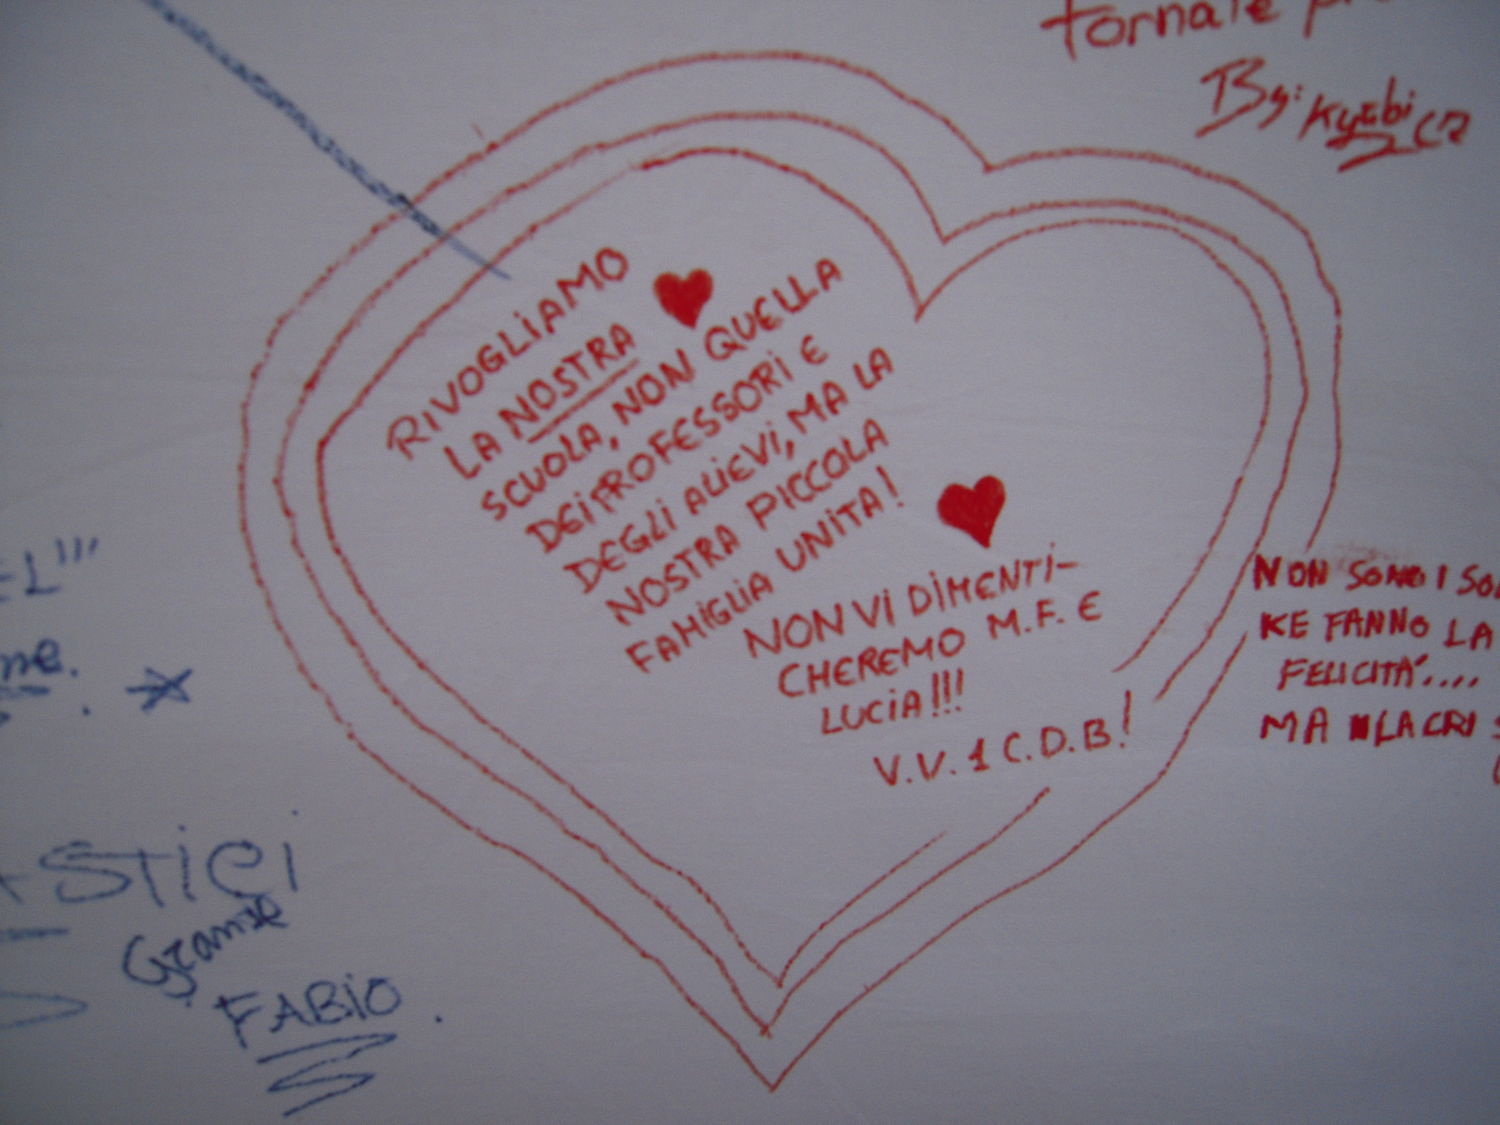 tornate
By: Kyrbi cz
RIVOGLIAMO
LA NOSTRA
SCUOLA, NON QUELLA
DEI PROFESSORI E
DEGLI ALIEVI, MA LA
NOSTRA PICCOLA
FAMIGLIA UNITA!
NON VI DIMENTI-
CHEREMO M.F. E
LUCIA!!!
V.V. 1 C.D.B!
NON SONO I
KE FANNO LA
FELICITÀ....
MA LACRI
STICI
Grande
FABIO.